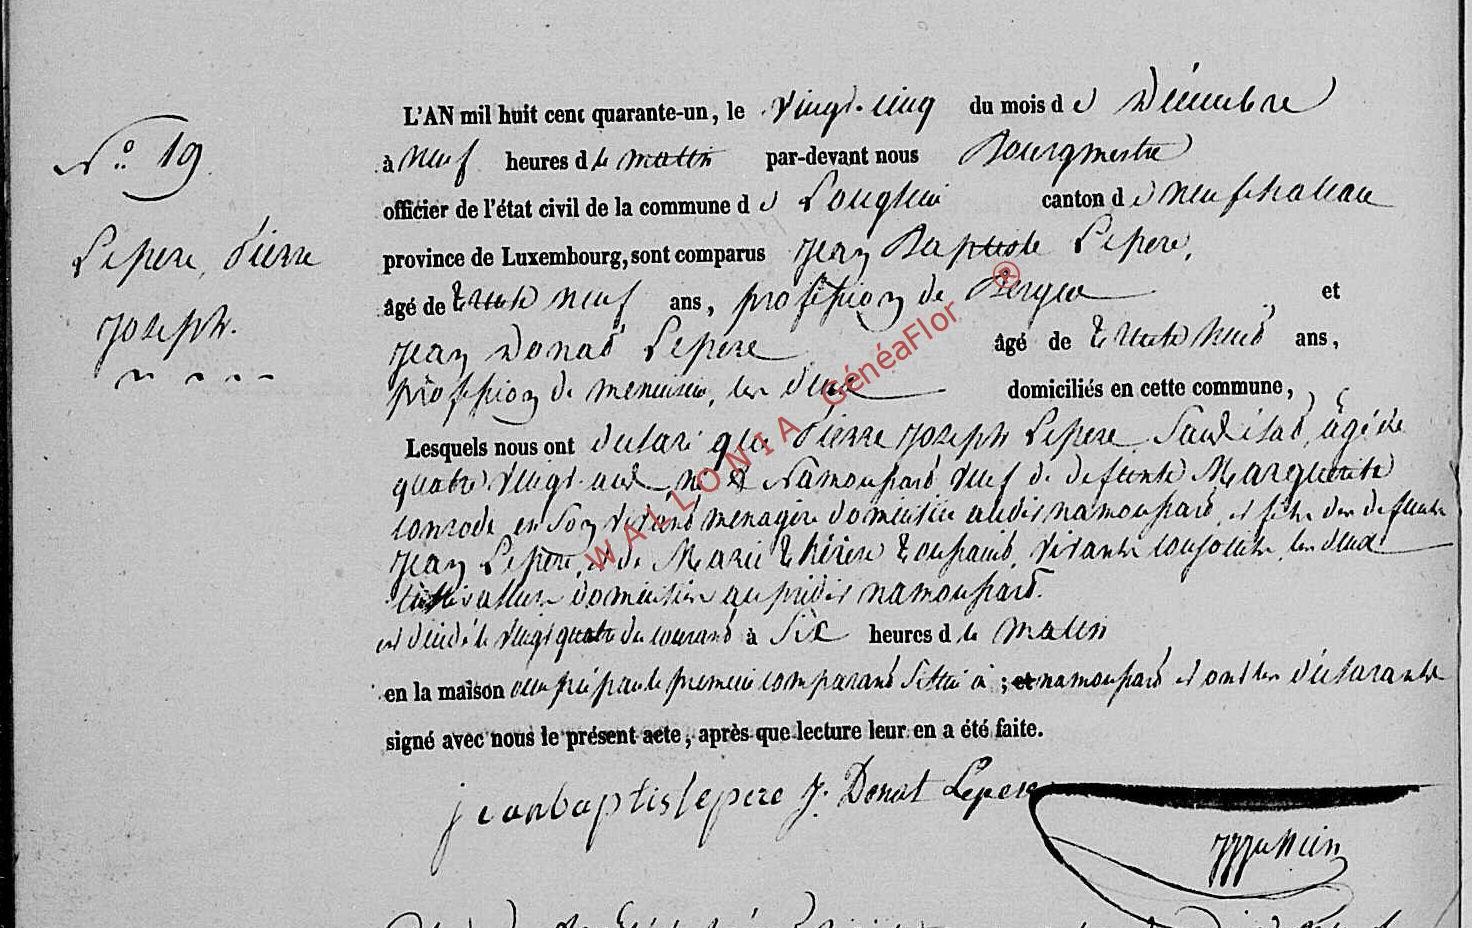 N° 19
Lepere, Pierre
Joseph.
L'AN mil huit cent quarante-un, le vingt-cinq du mois de Décembre
à neuf heures d le matin par-devant nous Bourgmestre
officier de l'état civil de la commune de Longlier canton de neufchateau
province de Luxembourg, sont comparus Jean Baptiste Lepere,
âgé de trente neuf ans, profession de Berger et
Jean Donat Lepere âgé de trente neuf ans,
profession de menuisier, les deux domiciliés en cette commune,
Lesquels nous ont declaré que Pierre Joseph Lepere Sans état, agé de
quatre vingt-un né à Namoussart veuf de defunte Marguerite
conrode en son vivant menagère domiciliée audit namoussart, et fils des defunts
Jean Lepere, et de Marie thérèse toussaint, vivante conjointe les deux
cultivateurs domiciliés au prédit namoussart.
est décédé le vingt quatre du courant à six heures d le matin
en la maison occupée par le premier comparant sittuée à ; et namoussart et ont les déclarants
signé avec nous le présent acte, après que lecture leur en a été faite.
jean baptis lepere J. Donat Lepere
WALLONIA GénéaFlor ®